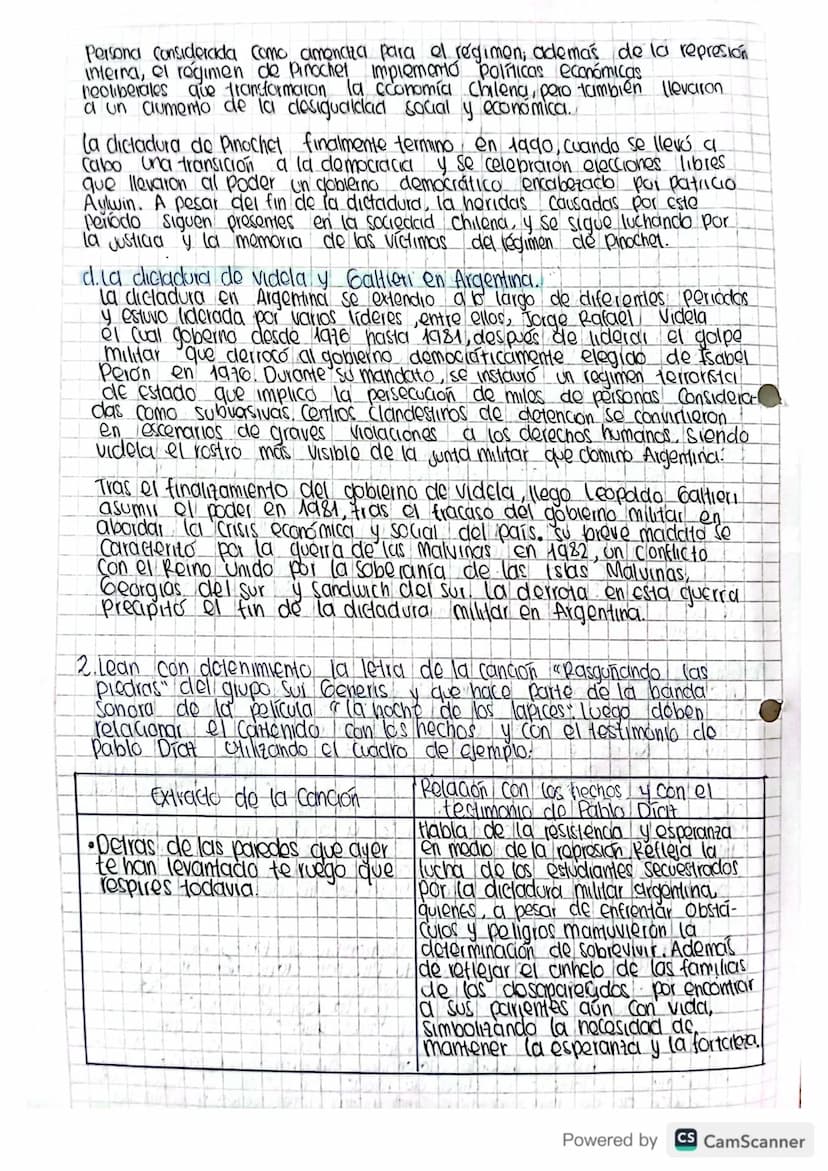 Persona considerada como amenaza para el régimen; además de la represión
interna, el régimen de Pinochet implementó políticas económicas
neoliberales que transformaron la economía chilena, pero también llevaron
a un aumento de la desigualdad social y económica.
la dictadura de Pinochet finalmente termino en 1990, cuando se llevó a
cabo una transición a la democracia y se celebraron elecciones libres
que llevaron al poder un gobierno democrático encabezado por Patricio
Aylwin. A pesar del fin de la dictadura, la heridas causadas por este
período siguen presentes en la sociedad chilena, y se sigue luchando por
la justicia y la memoria de las víctimas del régimen de Pinochet.
d. La dictadura de videla y Galtieri en Argentina.
la dictadura en Argentina se extendio a lo largo de diferentes periodos
y estuvo liderada por varios líderes, entre ellos, Jorge Rafael Videla
el cual goberno desde 1976 hasta 1981, después de liderar el golpe
militar que derrocó al gobierno democráticamente elegido de Isabel
Perón en 1976. Durante su mandato, se instauró un regimen terrorista
de Estado que implico la persecución de miles de personas considera-
das como subversivas. Centros clandestinos de detención se convirtieron
en escenarios de graves violaciones a los derechos humanos, siendo
videla el rostro más visible de la junta militar que domino Argentina.
Tras el finalizamiento del gobierno de videla, llego Leopoldo Galtieri
asumir el poder en 1981, tras el fracaso del gobierno militar en
abordar la crisis económica y social del país. su breve madato se
caracterizó por la guerra de las Malvinas en 1982, un conflicto
con el Reino Unido por la soberanía de las Islas Malvinas,
Georgias del sur y Sandwich del sur. La derrota en esta guerra
precipitó el fin de la dictadura militar en Argentina.
2. Lean con detenimiento la letra de la canción "Rasguñando las
piedras" del grupo Sui Generis y que hace parte de la banda
sonora de la película "la noche de los lapices". Luego deben
relacionar el contenido con los hechos y con el testimonio de
Pablo Díaz utilizando el cuadro de ejemplo:
Extracto de la Canción
Relación con los hechos y con el
testimonio de Pablo Díaz
• Detras de las paredes que ayer
te han levantado te ruego que
respires todavia.
Habla de la resistencia y esperanza
en medio de la represión Refleja la
lucha de los estudiantes secuestrados
por la dictadura militar argentina
quienes, a pesar de enfrentar obstá-
culos y peligros mantuvieron la
determinación de sobrevivir. Además
de reflejar el anhelo de las familias
de los desaparecidos por encontrar
a sus parientes aún con vida,
simbolizando la necesidad de
mantener la esperanza y la fortaleza.
Powered by CS CamScanner